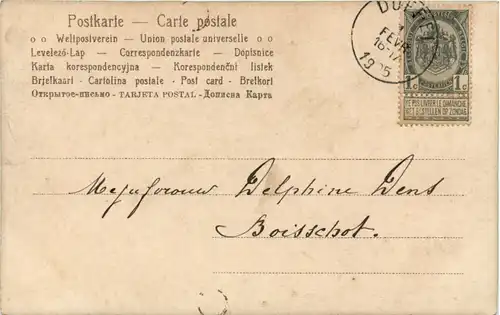 Postkarte — Carte postale
o o Weltpostverein - Union postale universelle o o
Levelező-Lap — Correspondenzkarte — Dopisnice
Karta korespondencyjna — Korespondenční listek
Brjefkaari - Cartolina postale - Post card - Brefkort
Открытое-письмо - TARJETA POSTAL - Дописна Карта
FEVR
1905
1c 1c
NE PAS LIVRER LE DIMANCHE
NIET BESTELLEN OP ZONDAG
Mejufvrouw Delphine Dens
Boisschot.